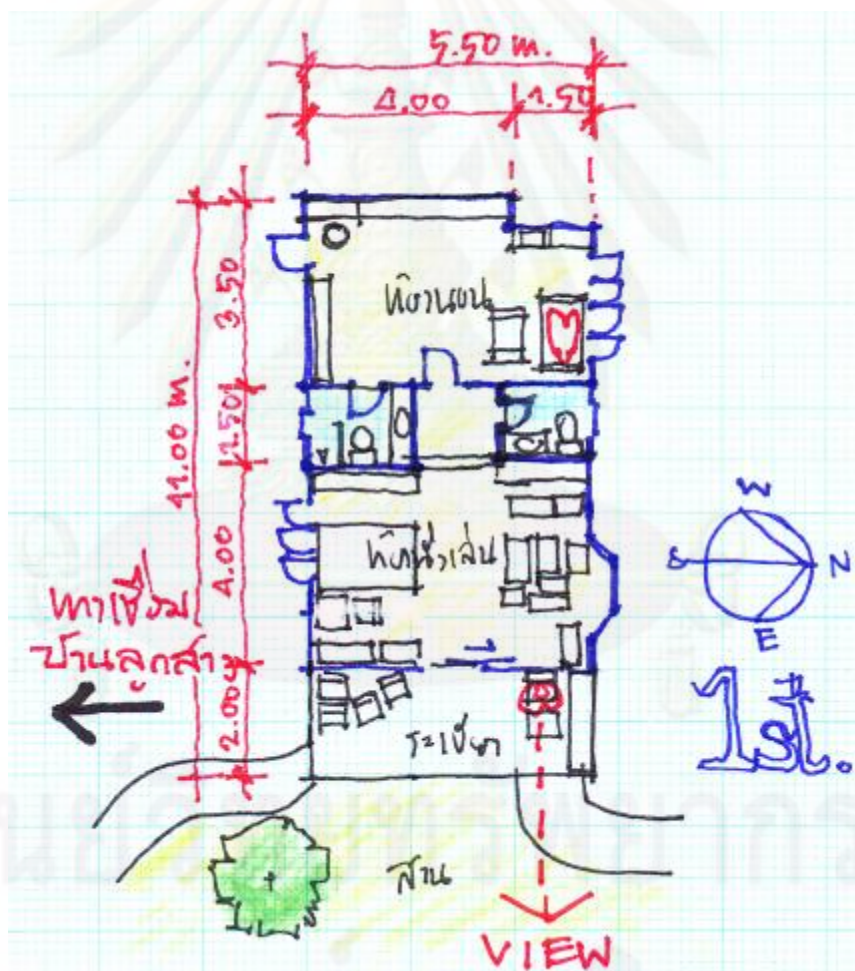 5.50 m.
4.00
1.50
3.50
11.00 m.
1.50
4.00
2.00
ที่นั่งเล่น
ทางเชื่อม
บ้านลูกสาว
ระเบียง
สวน
VIEW
W
S
N
E
1st.